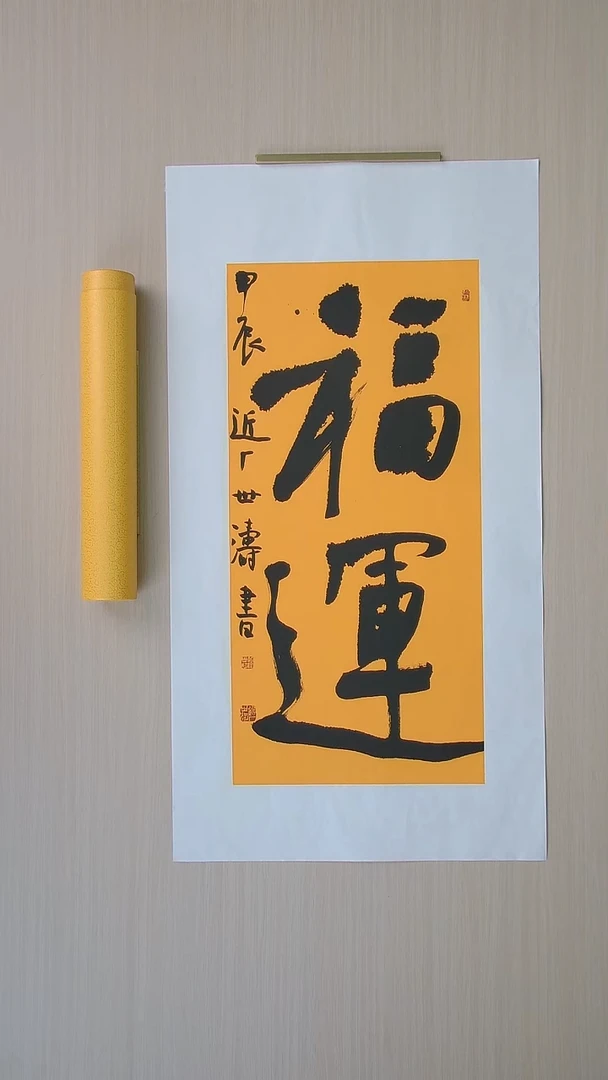 福運
甲辰 近厂世濤書